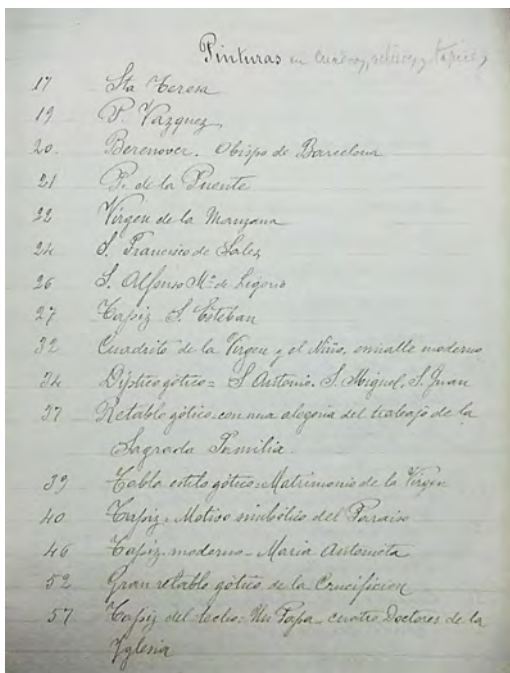 Pinturas en cuadros, relieves, y tapices
17 Sta Teresa
19 P. Vazquez
20. Berenover. Obispo de Barcelona
21 P. de la Puente
22 Virgen de la Manzana
24 S. Francisco de Sales
26 S. Alfonso Mª de Ligorio
27 Tapiz S. Esteban
32 Cuadrito de la Virgen y el Niño, esmalte moderno
34 Díptico gótico = S Antonio. S. Miguel. S. Juan
37 Retablo gótico con una alegoria del trabajo de la
Sagrada Familia.
39 Tabla estilo gótico = Matrimonio de la Virgen
40 Tapiz. Motivo simbólico del Paraiso
46 Tapiz moderno - Maria Antonieta
52 Gran retablo gótico de la Crucificion
57 Tapiz del techo: Un Papa cuatro Doctores de la
Yglesia